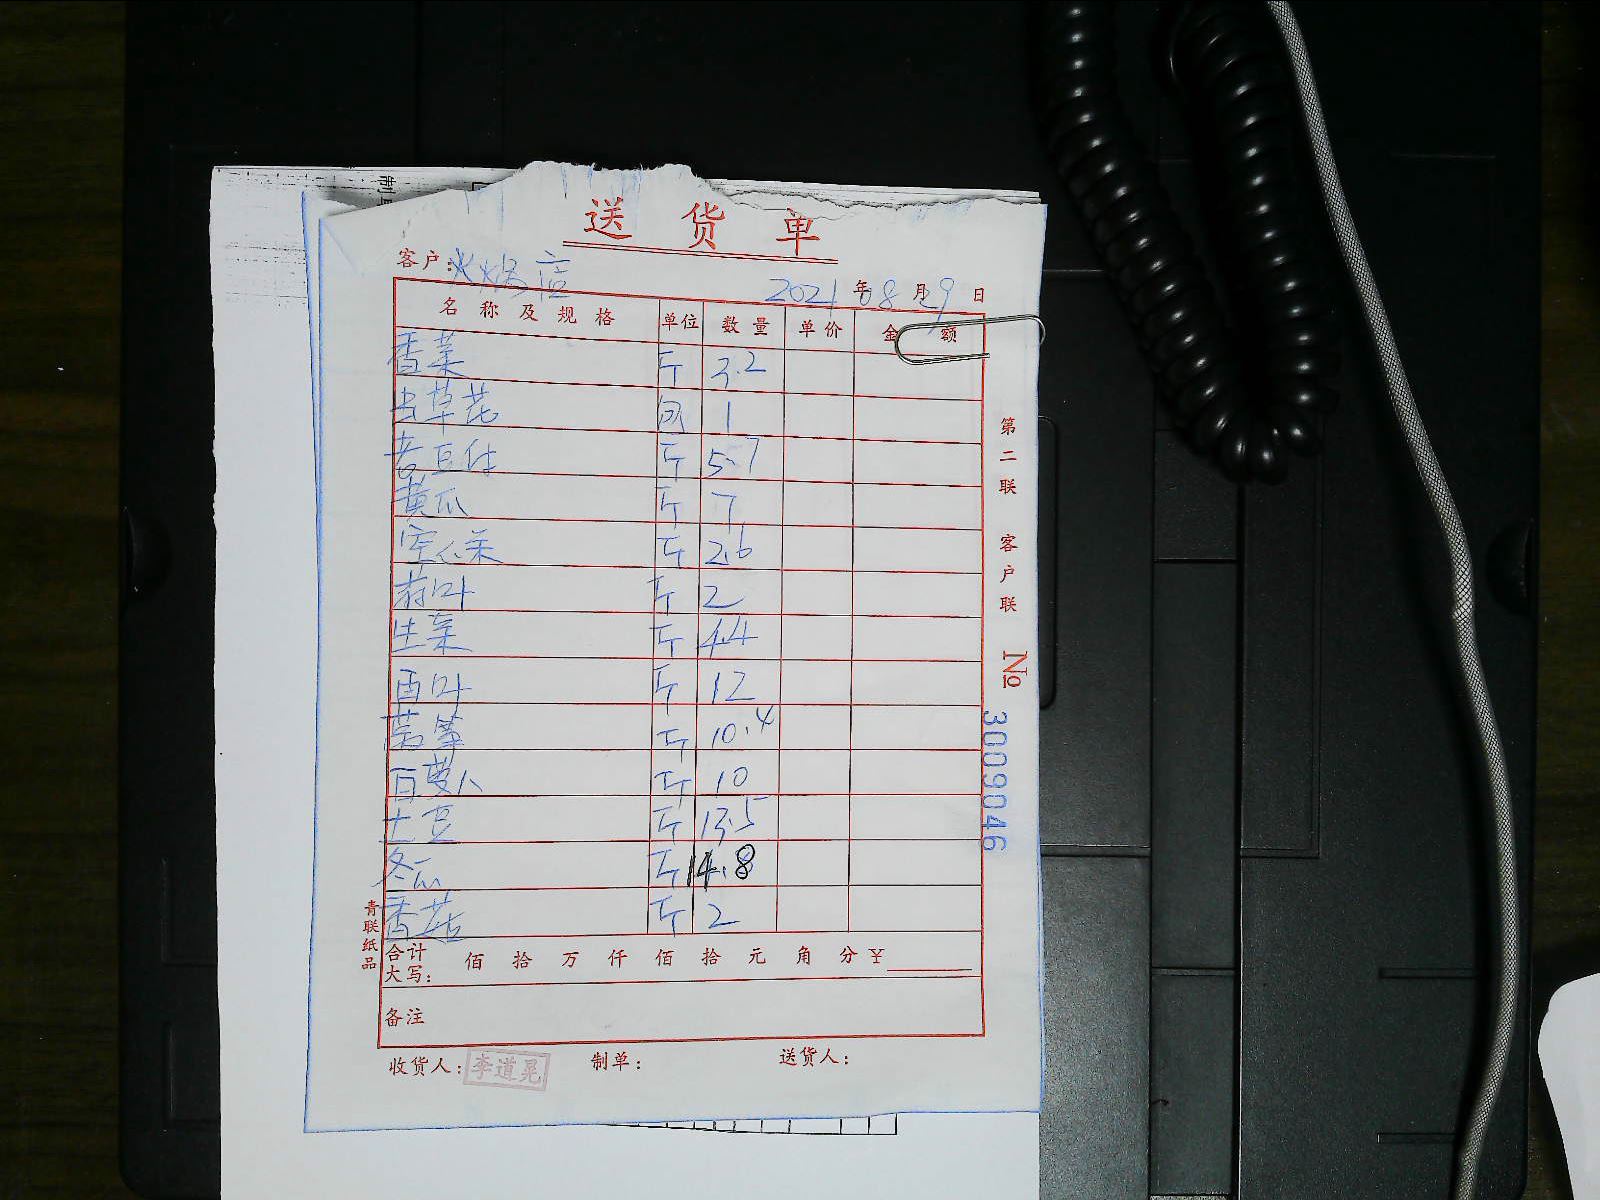 送 货 单
客户: 火锅店
2021 年 08 月 29 日
名 称 及 规 格 单位 数 量 单 价 金 额
香菜 斤 3.2
虫草花 包 1
斤 5.7
黄瓜 斤 7
空心菜 斤 2.6
斤 2
生菜 斤 4.4
百叶 斤 12
莴笋 斤 10.4
白萝卜 斤 10
土豆 斤 13.5
冬瓜 斤 14.8
香菇 斤 2
合计大写: 佰 拾 万 仟 佰 拾 元 角 分 ¥
备注
收货人: 李道晃 制单: 送货人:
第二联 客户联 No 3009046
青联纸品